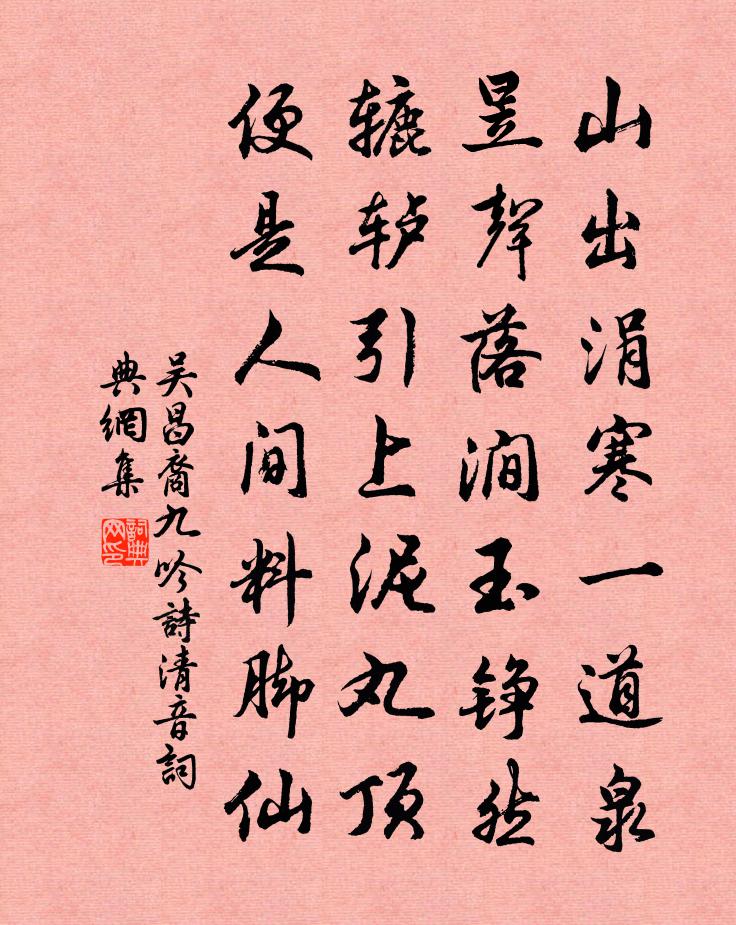 山出涓寒一道泉
昱聲落涧玉铮然
辘轳引上泥丸顶
便是人间料脚仙
吴昌裔九吟詩清音詞
典網集
詞典网印